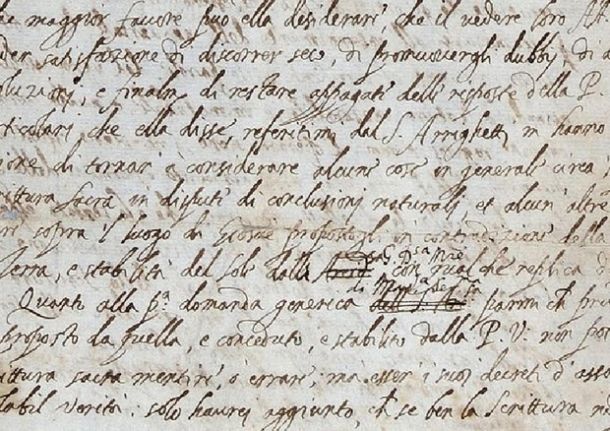 he maggior favore può ella desiderare, che il vedere loro Al
der satisfazione di discorrer seco, di promuovergli dubbij, di a
oluzioni, e finalm.e di restare appagati delle risposte della P.
rticolari che ella disse, referitimi dal S. Arrighetti m hanno
ione di tornare a considerare alcune cose in generale circa
rittura Sacra in dispute di conclusioni naturali, et alcun' altre
re sopra il luogo di Giosuè propostogli in contradizione della
Terra, e stabilità del Sole dalla S.a G. D.sa M.re con qualche replica d
Quanto alla p.a domanda generica di Mad.a Ser.sa parmi ch pru
proposto da quella, e conceduto, e stabilito dalla P. V. non po
rittura sacra mentire, o errare; ma esser i suoi decreti d'asso
labil verità: solo haurei aggiunto, ch se ben la Scrittura n